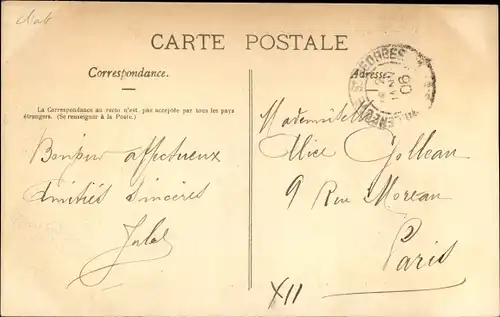 CARTE POSTALE
Correspondance.
Adresse
La Correspondance au recto n'est pas acceptée par tous les pays
étrangers. (Se renseigner à la Poste.)
Bonjour affectueux
Amitiés sincères
Mademoiselle
Alice Golleau
9 Rue Moreau
Paris
XII
06